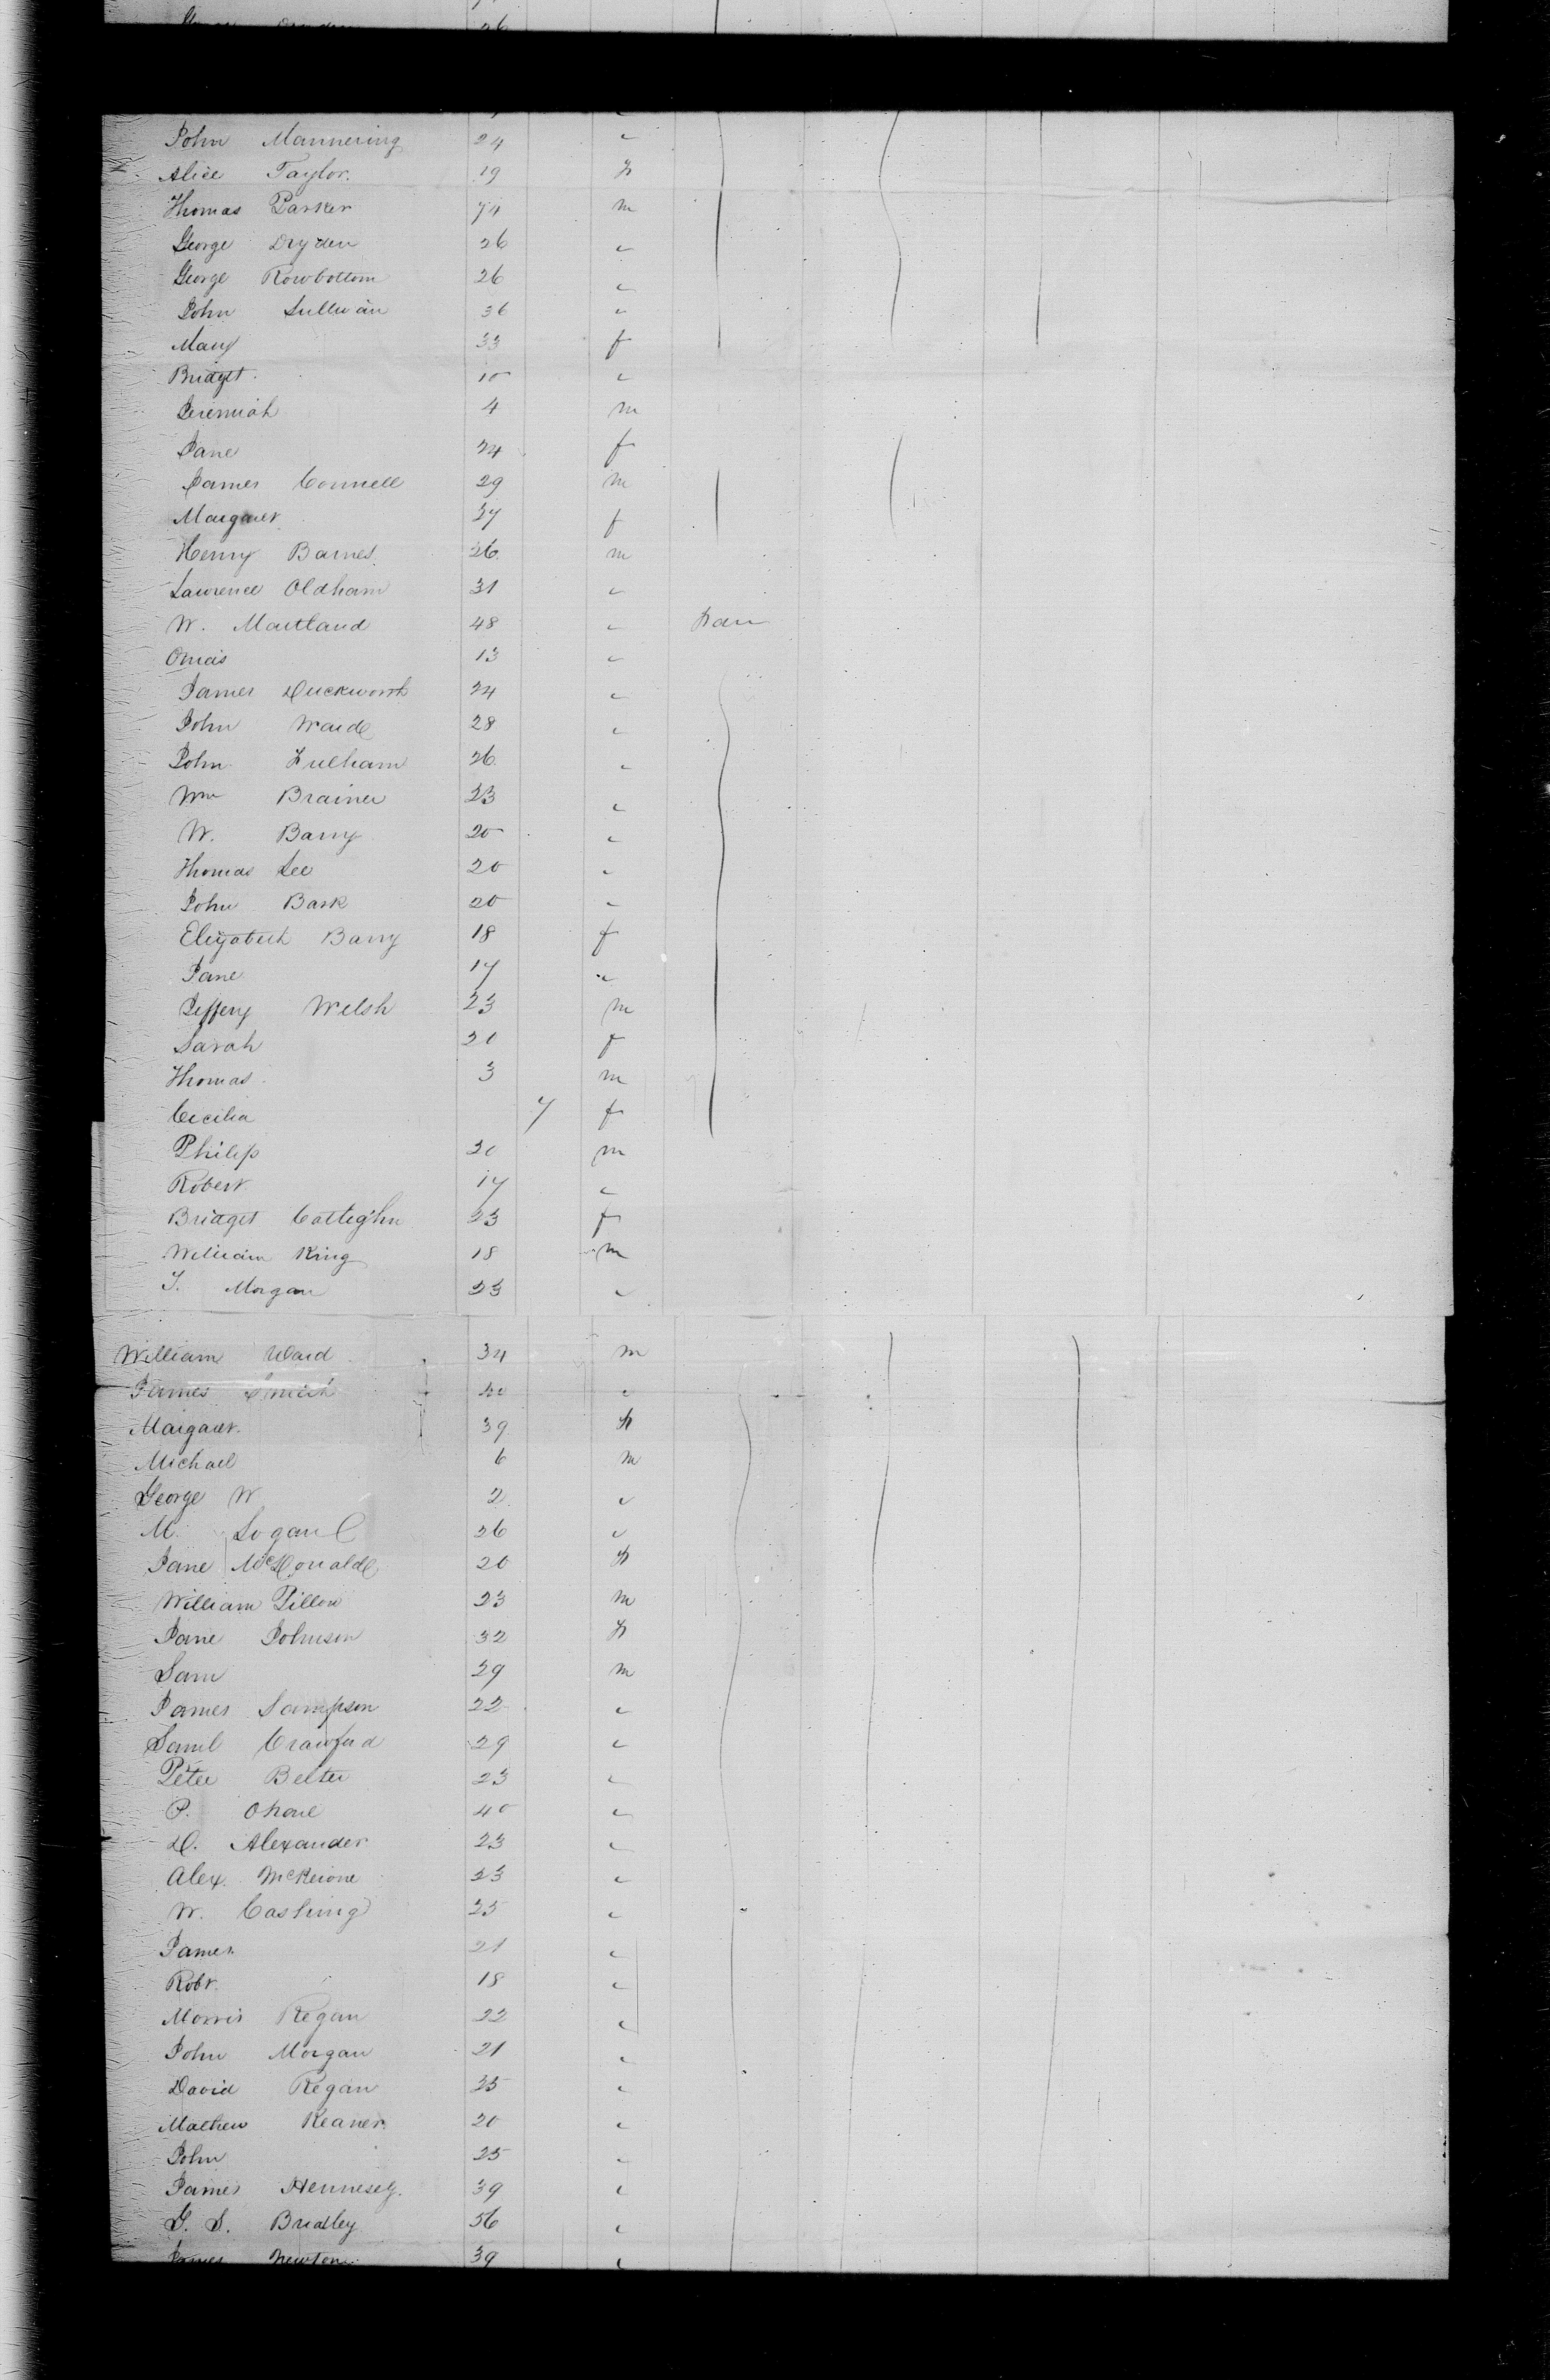 26
John Mannering 24 "
Alice Taylor. 19 f
Thomas Parker 74 m
George Dryden 26 "
George Rowbottom 26 "
John Sullivan 36 "
Mary 33 f
Bridget 10 "
Jeremiah 4 m
Jane 24 f
James Connell 29 m
Margaret 27 f
Henry Barnes. 26. m
Lawrence Oldham 31 "
W. Maitland 48 "
13 "
James Duckworth 24 "
John Ward 28 "
John Fulham 26. "
Wm Brainer 23 "
W. Barry 20 "
Thomas Lee 20 "
John Bark 20 "
Elizabeth Barry 18 f
Jane 17 "
Jeffery Welsh 23 m
Sarah 20 f
Thomas 3 m
Cecilia 7 f
Philip 20 m
Robert 17 "
Bridget 23 f
William King 18 m
Morgan 23 "
William Ward 34 m
James Smith 40 "
Margaret. 39 f
Michael 6 m
George W 2 "
M. Logan 26 "
Jane McDonald 20 f
William Pillow 23 m
Jane Johnson 32 f
Sam 29 m
James Sampson 22 "
Saml Crawford 29 "
Peter Belter 23 "
P. 40 "
D. Alexander 23 "
Alex. 23 "
W. Cashing 25 "
James 21 "
Robt. 18 "
Morris Regan 22 "
John Morgan 21 "
David Regan 25 "
Mathew Keaner. 20 "
John 25 "
James Hennesey. 39 "
G. S. Bradley 56 "
James Newton 39 "